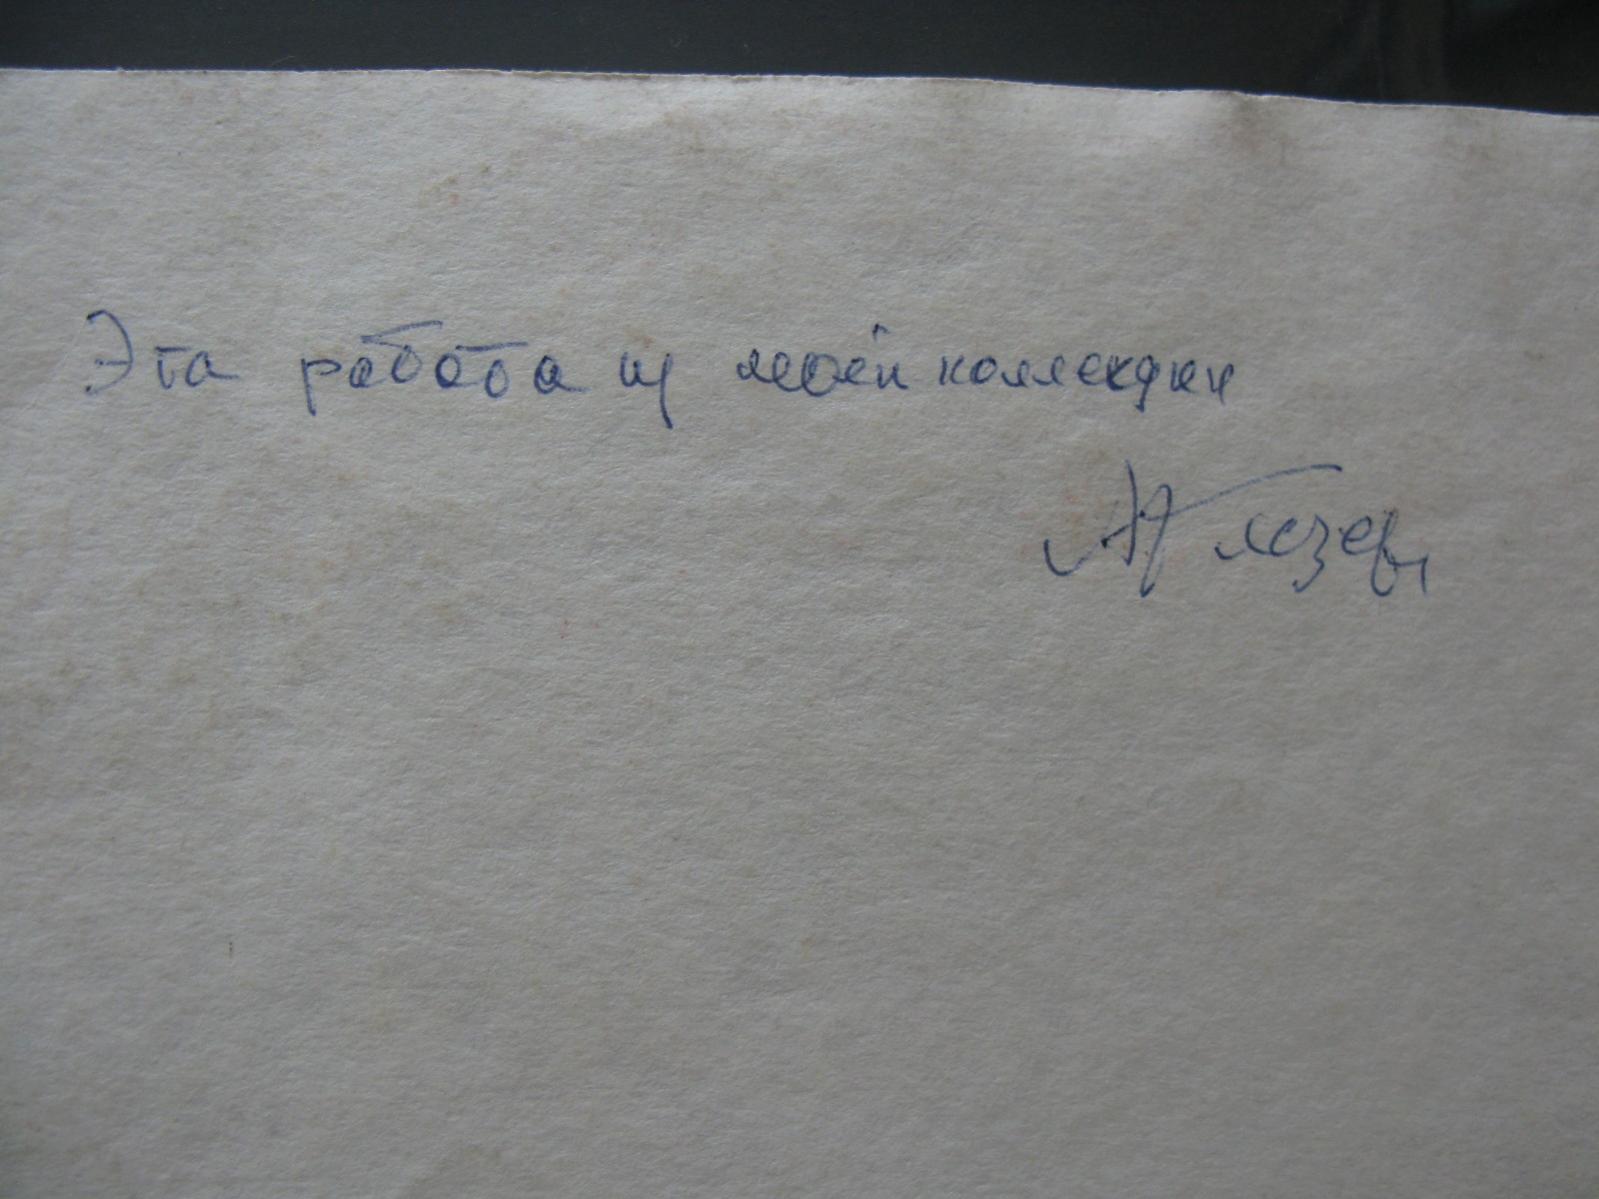 Эта работа из моей коллекции
А Глезер